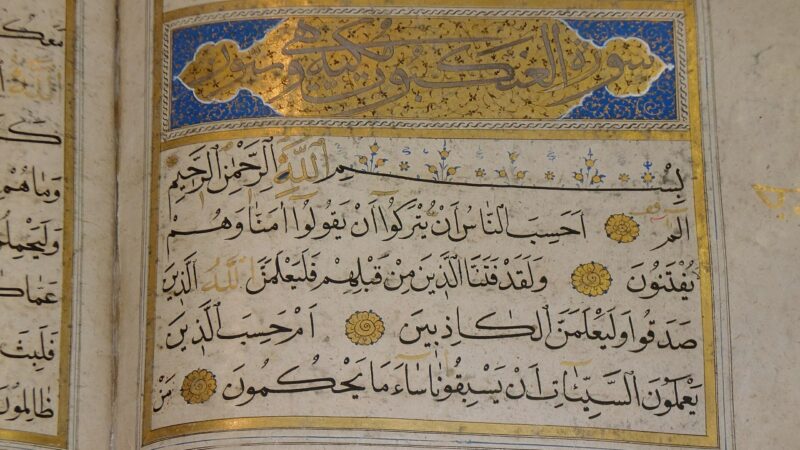 سورة العنكبوت مكية وهي
بسم الله الرحمن الرحيم
الم احسب الناس ان يتركوا ان يقولوا امنا وهم
يفتنون ولقد فتنا الذين من قبلهم فليعلمن الله الذين
صدقوا وليعلمن الكاذبين ام حسب الذين
يعملون السيئات ان يسبقونا ساء ما يحكمون من
معكم
الله
وما هم
عما
فلبث
ظالمون